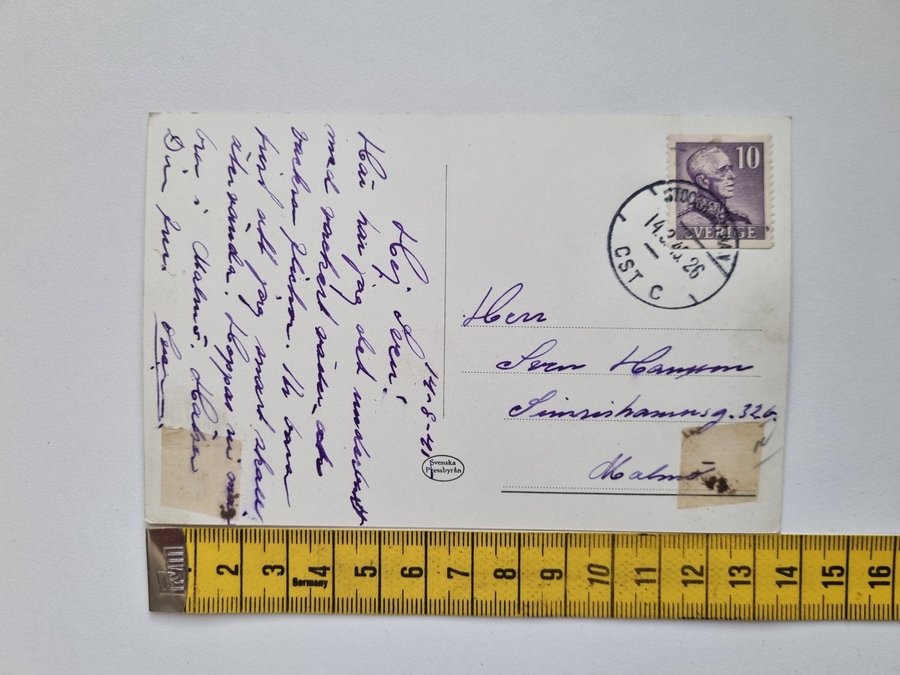 14-8-41
Hej Sven!
Här har jag det underbart
med vackert väder och
vackra flickor. Är bara
att jag snart skall
återvända. Hoppas ni
bra i Malmö. Hälsn
Din
10
SVERIGE
STOCKHOLM
14.8.41.26
CST C
Herr
Sven Hansson
Simrishamnsg. 32
Malmö
Svenska
Pressbyrån
2 3 4 5 6 7 8 9 10 11 12 13 14 15 16
Germany